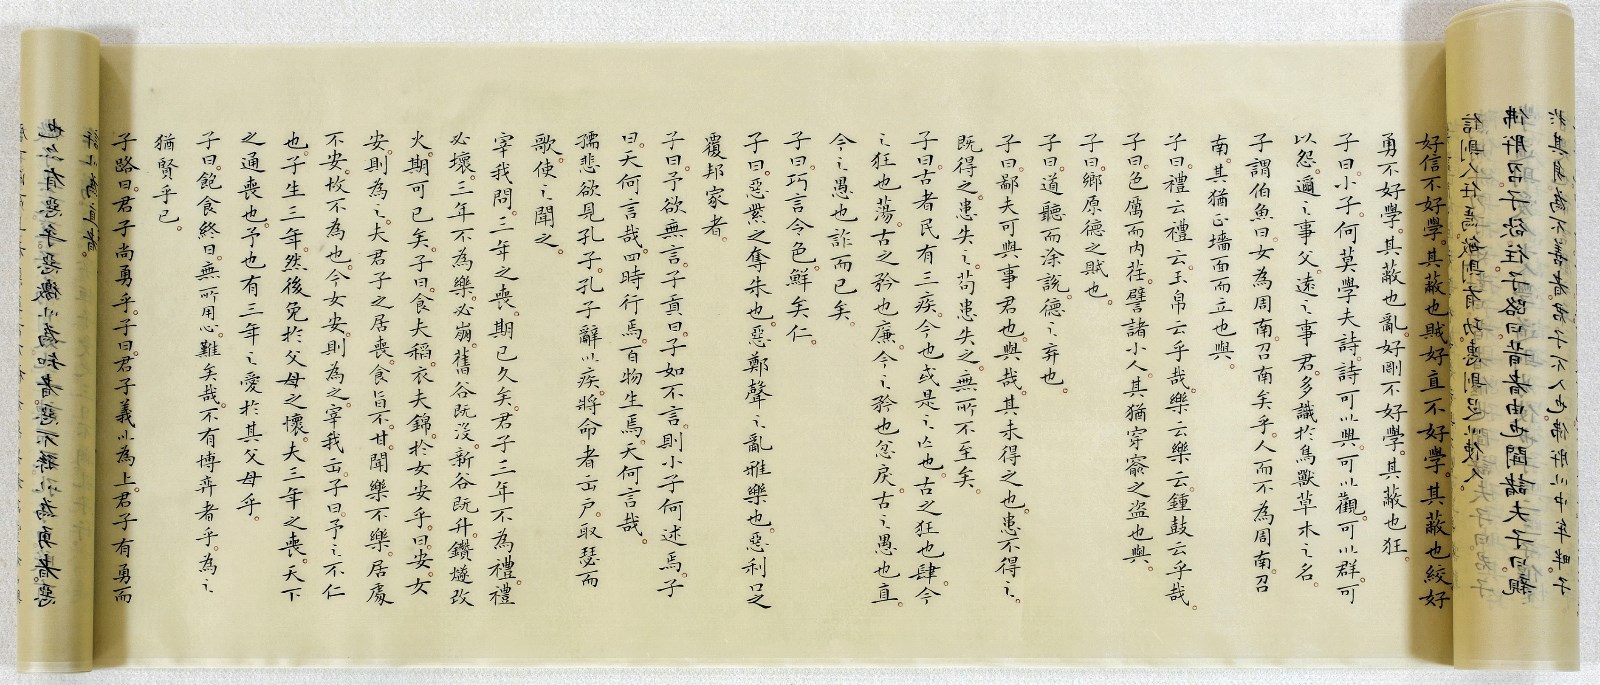 於其身為不善者君子不入也佛肸以中牟畔子
佛肸召子欲往子路曰昔者由也聞諸夫子曰親
信則人任焉敏則有功惠則足以使人
好信不好學其蔽也賊好直不好學其蔽也絞好
勇不好學其蔽也亂好剛不好學其蔽也狂
子曰小子何莫學夫詩詩可以興可以觀可以群可
以怨邇之事父遠之事君多識於鳥獸草木之名
子謂伯魚曰女為周南召南矣乎人而不為周南召
南其猶正墻面而立也與
子曰禮云禮云玉帛云乎哉樂云樂云鍾鼓云乎哉
子曰色厲而內荏譬諸小人其猶穿窬之盜也與
子曰鄉原德之賊也
子曰道聽而涂說德之弃也
子曰鄙夫可與事君也與哉其未得之也患不得之
既得之患失之苟患失之無所不至矣
子曰古者民有三疾今也或是之亾也古之狂也肆今
之狂也蕩古之矜也廉今之矜也忿戾古之愚也直
今之愚也詐而已矣
子曰巧言令色鮮矣仁
子曰惡紫之奪朱也惡鄭聲之亂雅樂也惡利口之
覆邦家者
子曰予欲無言子貢曰子如不言則小子何述焉子
曰天何言哉四時行焉百物生焉天何言哉
孺悲欲見孔子孔子辭以疾將命者出戶取瑟而
歌使之聞之
宰我問三年之喪期已久矣君子三年不為禮禮
必壞三年不為樂樂必崩舊谷既沒新谷既升鑽燧改
火期可已矣子曰食夫稻衣夫錦於女安乎曰安女
安則為之夫君子之居喪食旨不甘聞樂不樂居處
不安故不為也今女安則為之宰我出子曰予之不仁
也子生三年然後免於父母之懷夫三年之喪天下
之通喪也予也有三年之愛於其父母乎
子曰飽食終日無所用心難矣哉不有博弈者乎為之
猶賢乎已
子路曰君子尚勇乎子曰君子義以為上君子有勇而
訐以為直者
也乎有惡乎惡徼以為知者惡不孫以為勇者惡